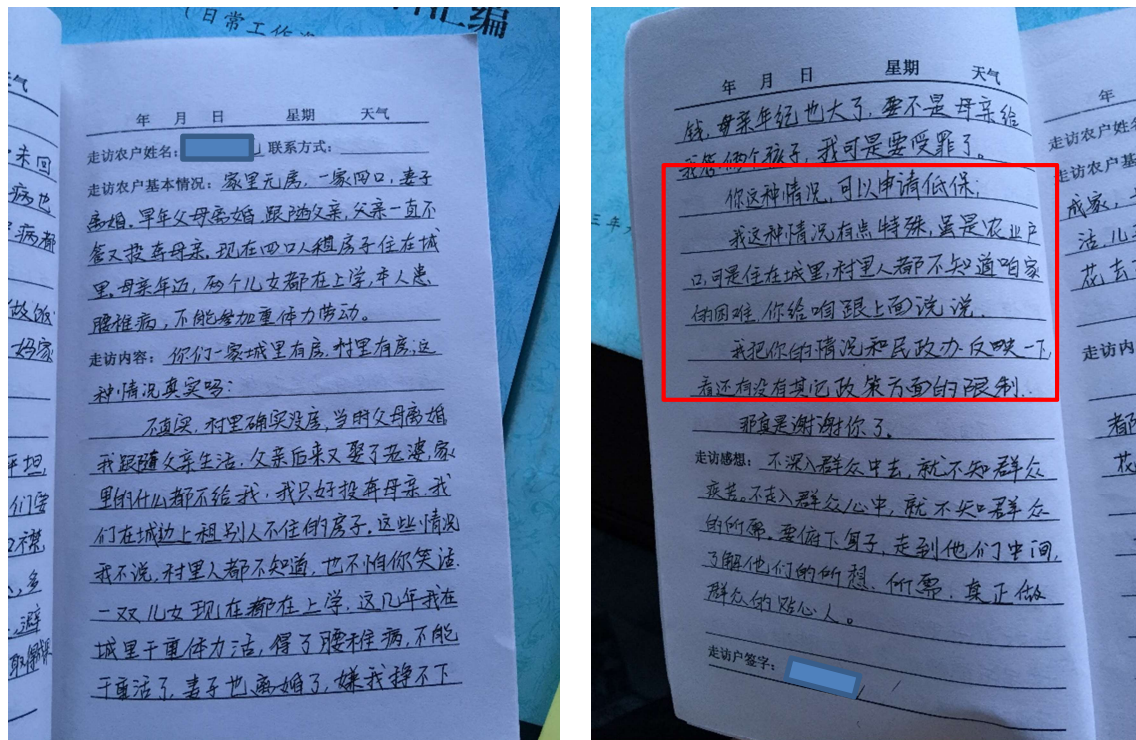 (日常工作
汇编
年 月 日 星期 天气
走访农户姓名: 联系方式:
走访农户基本情况:家里无房,一家四口,妻子
离婚.早年父母离婚,跟随父亲,父亲一直不
管又投奔母亲.现在四口人租房子住在城
里.母亲年迈,两个儿女都在上学,本人患
腰椎病,不能参加重体力劳动。
走访内容:你们一家城里有房,村里有房,这
种情况真实吗:
不真实,村里确实没房,当时父母离婚
我跟随父亲生活,父亲后来又娶了老婆,家
里的什么都不给我,我只好投奔母亲.我
们在城边上租别人不住的房子.这些情况
我不说,村里人都不知道,也不怕你笑话.
一双儿女现在都在上学,这几年我在
城里干重体力活,得了腰椎病,不能
干重活了,妻子也离婚了,嫌我挣不下
天气
未回
病也
病都
做饭
妈家
平坦
们要
多
避
年 月 日 星期 天气
钱,母亲年纪也大了,要不是母亲给
我管俩个孩子,我可是要受罪了。
你这种情况,可以申请低保;
我这种情况有点特殊,虽是农业户
口,可是住在城里,村里人都不知道咱家
的困难,你给咱跟上面说说.
我把你的情况和民政办反映一下,
看还有没有其它政策方面的限制.
那真是谢谢你了.
走访感想:不深入群众中去,就不知群众
疾苦.不走入群众心中,就不知群众
的所需.要俯下身子,走到他们中间,
了解他们的所想、所需,真正做
群众的贴心人。
走访户签字:
三年
年
走访农户姓名
走访农户基
成家,
活,儿
花去
走访内
都
花